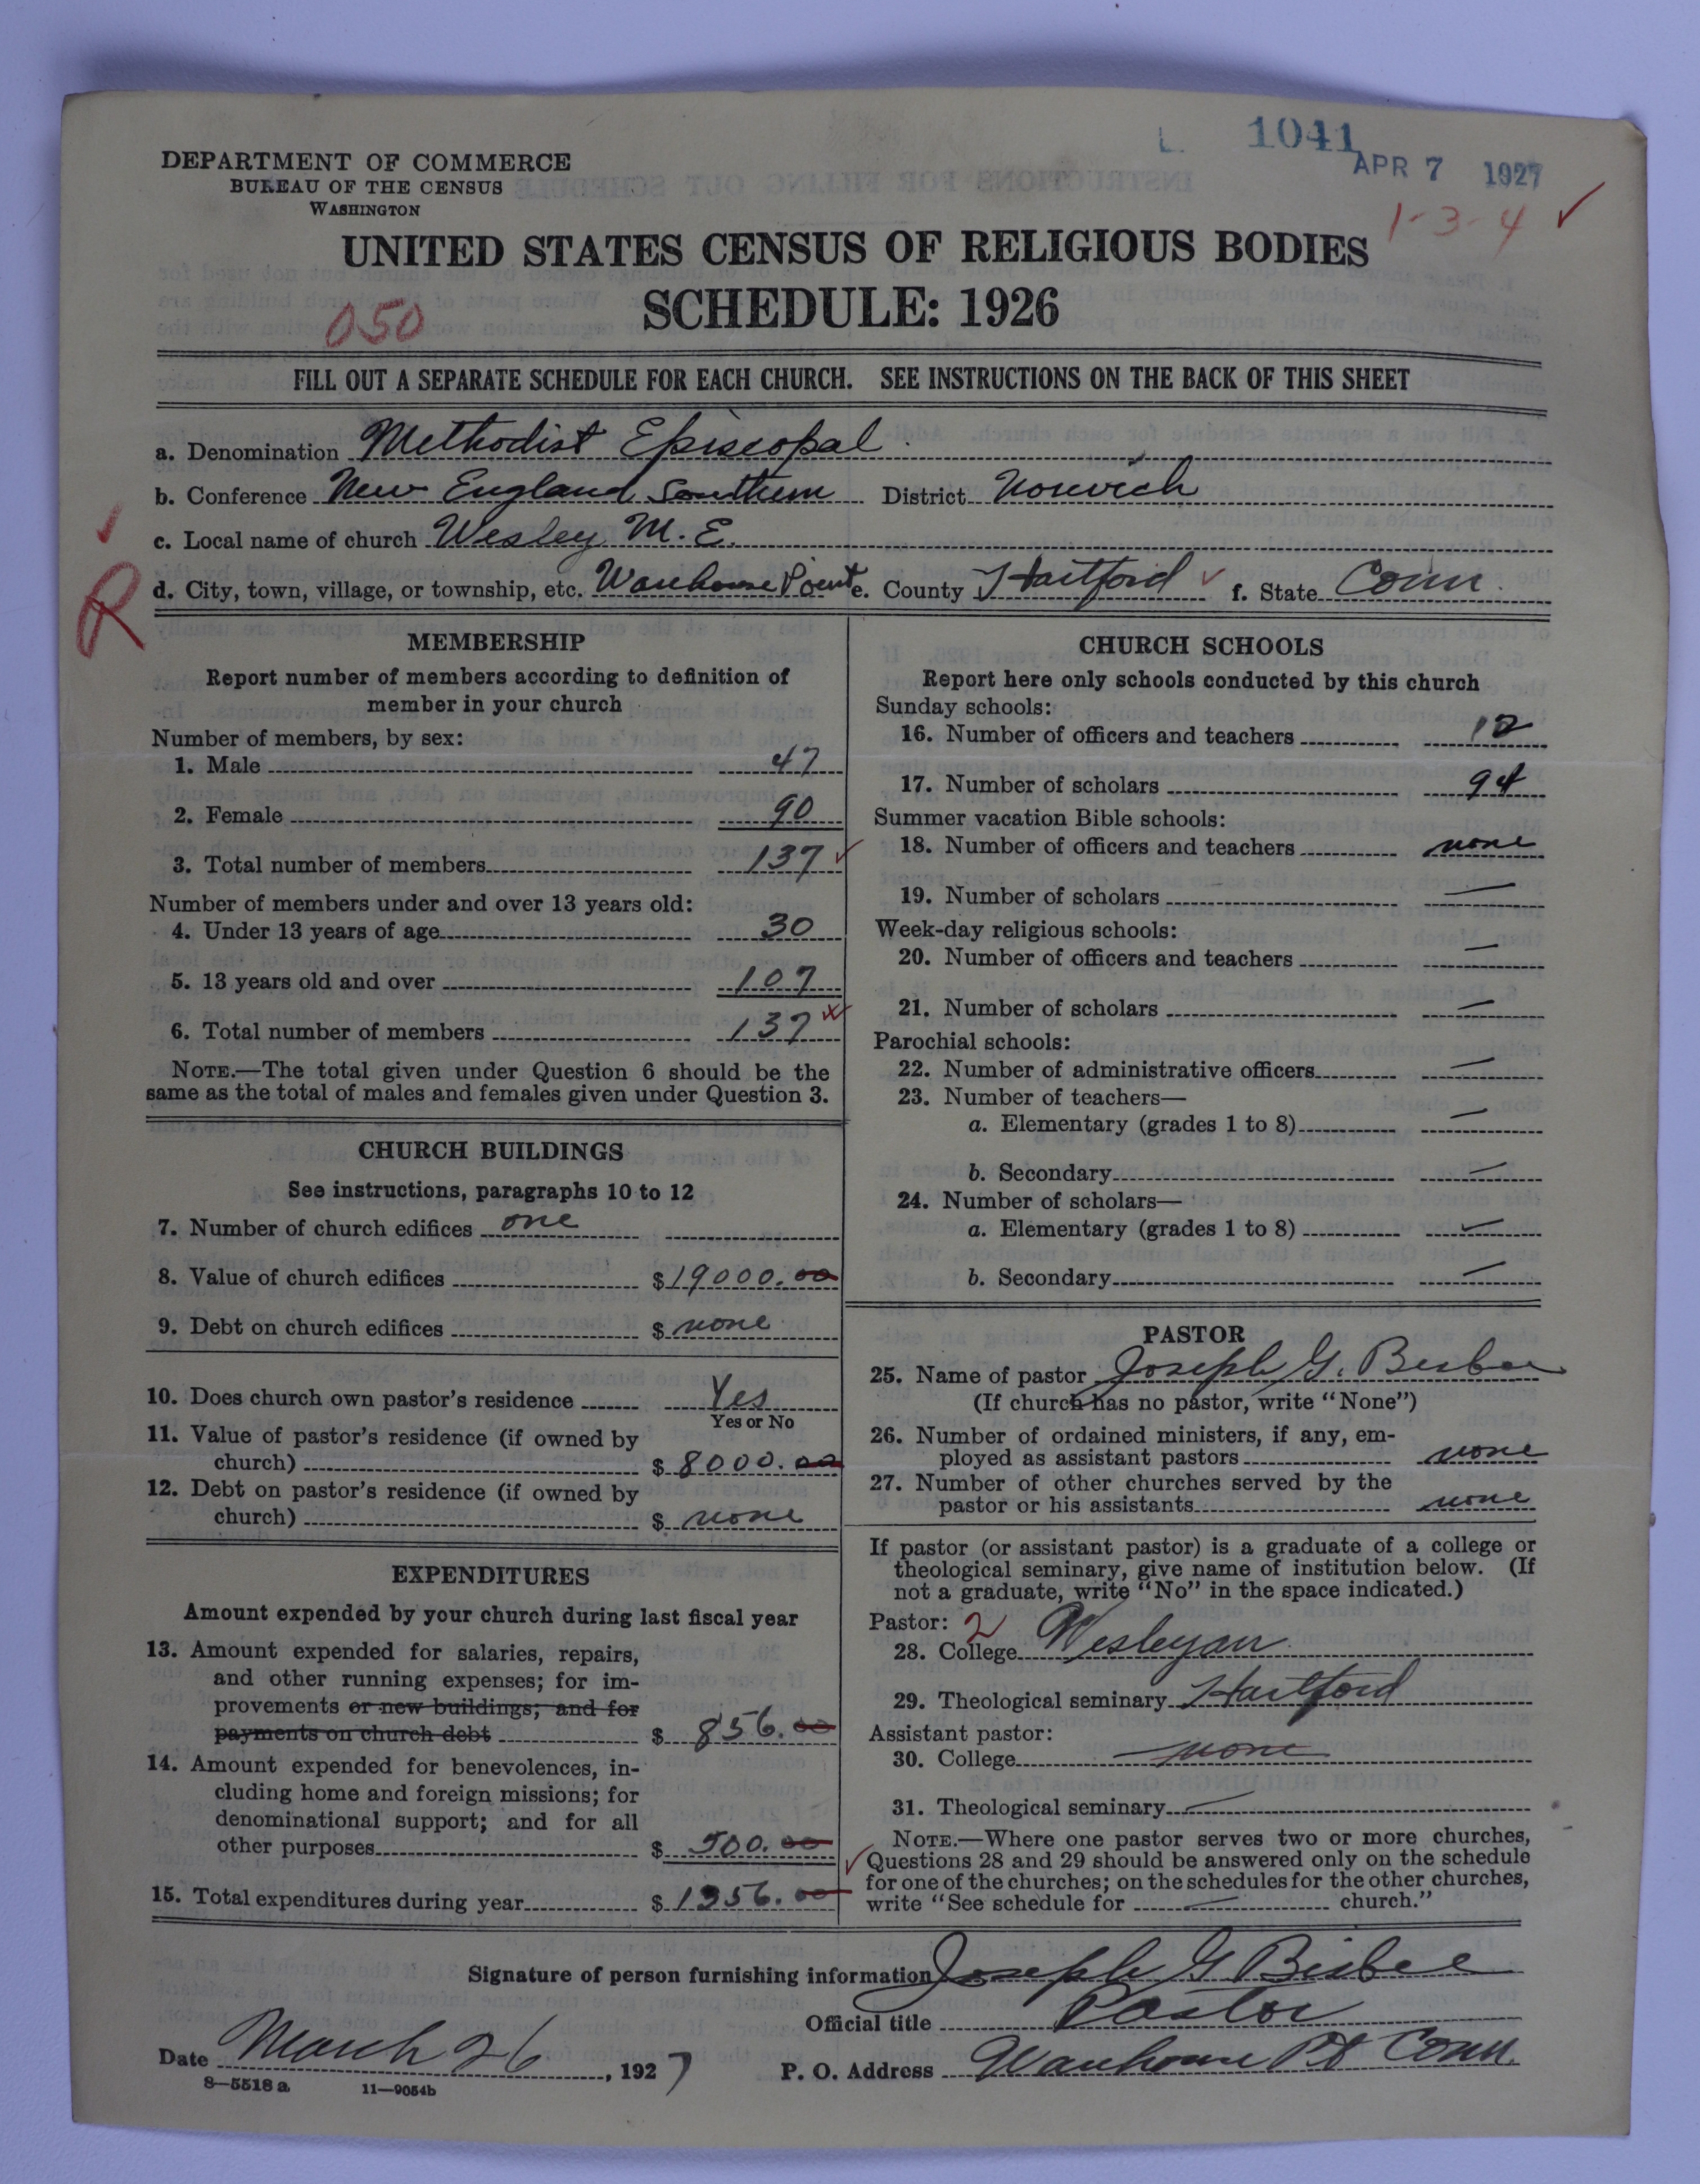 L. 1041
APR 7 1927
1-3-4 ✓
DEPARTMENT OF COMMERCE
BUREAU OF THE CENSUS
WASHINGTON
UNITED STATES CENSUS OF RELIGIOUS BODIES
SCHEDULE: 1926
050
FILL OUT A SEPARATE SCHEDULE FOR EACH CHURCH. SEE INSTRUCTIONS ON THE BACK OF THIS SHEET
a. Denomination Methodist Episcopal
b. Conference New England Southern District Norwich
c. Local name of church Wesley M. E.
R
d. City, town, village, or township, etc. Warehouse Point e. County Hartford ✓ f. State Conn.
MEMBERSHIP
Report number of members according to definition of
member in your church
Number of members, by sex:
1. Male 47
2. Female 90
3. Total number of members 137 ✓
Number of members under and over 13 years old:
4. Under 13 years of age 30
5. 13 years old and over 107
6. Total number of members 137
NOTE.—The total given under Question 6 should be the
same as the total of males and females given under Question 3.
CHURCH BUILDINGS
See instructions, paragraphs 10 to 12
7. Number of church edifices one
8. Value of church edifices $19000.00
9. Debt on church edifices $ none
10. Does church own pastor's residence Yes
Yes or No
11. Value of pastor's residence (if owned by
church) $ 8000.00
12. Debt on pastor's residence (if owned by
church) $ none
EXPENDITURES
Amount expended by your church during last fiscal year
13. Amount expended for salaries, repairs,
and other running expenses; for im-
provements or new buildings; and for
payments on church debt $ 856.00
14. Amount expended for benevolences, in-
cluding home and foreign missions; for
denominational support; and for all
other purposes $ 500.00
15. Total expenditures during year $ 1356.00
CHURCH SCHOOLS
Report here only schools conducted by this church
Sunday schools:
16. Number of officers and teachers 12
17. Number of scholars 94
Summer vacation Bible schools:
18. Number of officers and teachers none
19. Number of scholars —
Week-day religious schools:
20. Number of officers and teachers —
21. Number of scholars —
Parochial schools:
22. Number of administrative officers —
23. Number of teachers—
a. Elementary (grades 1 to 8) —
b. Secondary —
24. Number of scholars—
a. Elementary (grades 1 to 8) —
b. Secondary —
PASTOR
25. Name of pastor Joseph G. Bisbee
(If church has no pastor, write "None")
26. Number of ordained ministers, if any, em-
ployed as assistant pastors none
27. Number of other churches served by the
pastor or his assistants none
If pastor (or assistant pastor) is a graduate of a college or
theological seminary, give name of institution below. (If
not a graduate, write "No" in the space indicated.)
Pastor: 2
28. College Wesleyan
29. Theological seminary Hartford
Assistant pastor:
30. College none
31. Theological seminary —
NOTE.—Where one pastor serves two or more churches,
Questions 28 and 29 should be answered only on the schedule
for one of the churches; on the schedules for the other churches,
write "See schedule for — church."
Signature of person furnishing information Joseph G Bisbee
Official title Pastor
Date March 26, 1927 P. O. Address Warehouse Pt Conn.
8—5518 a 11—9054b